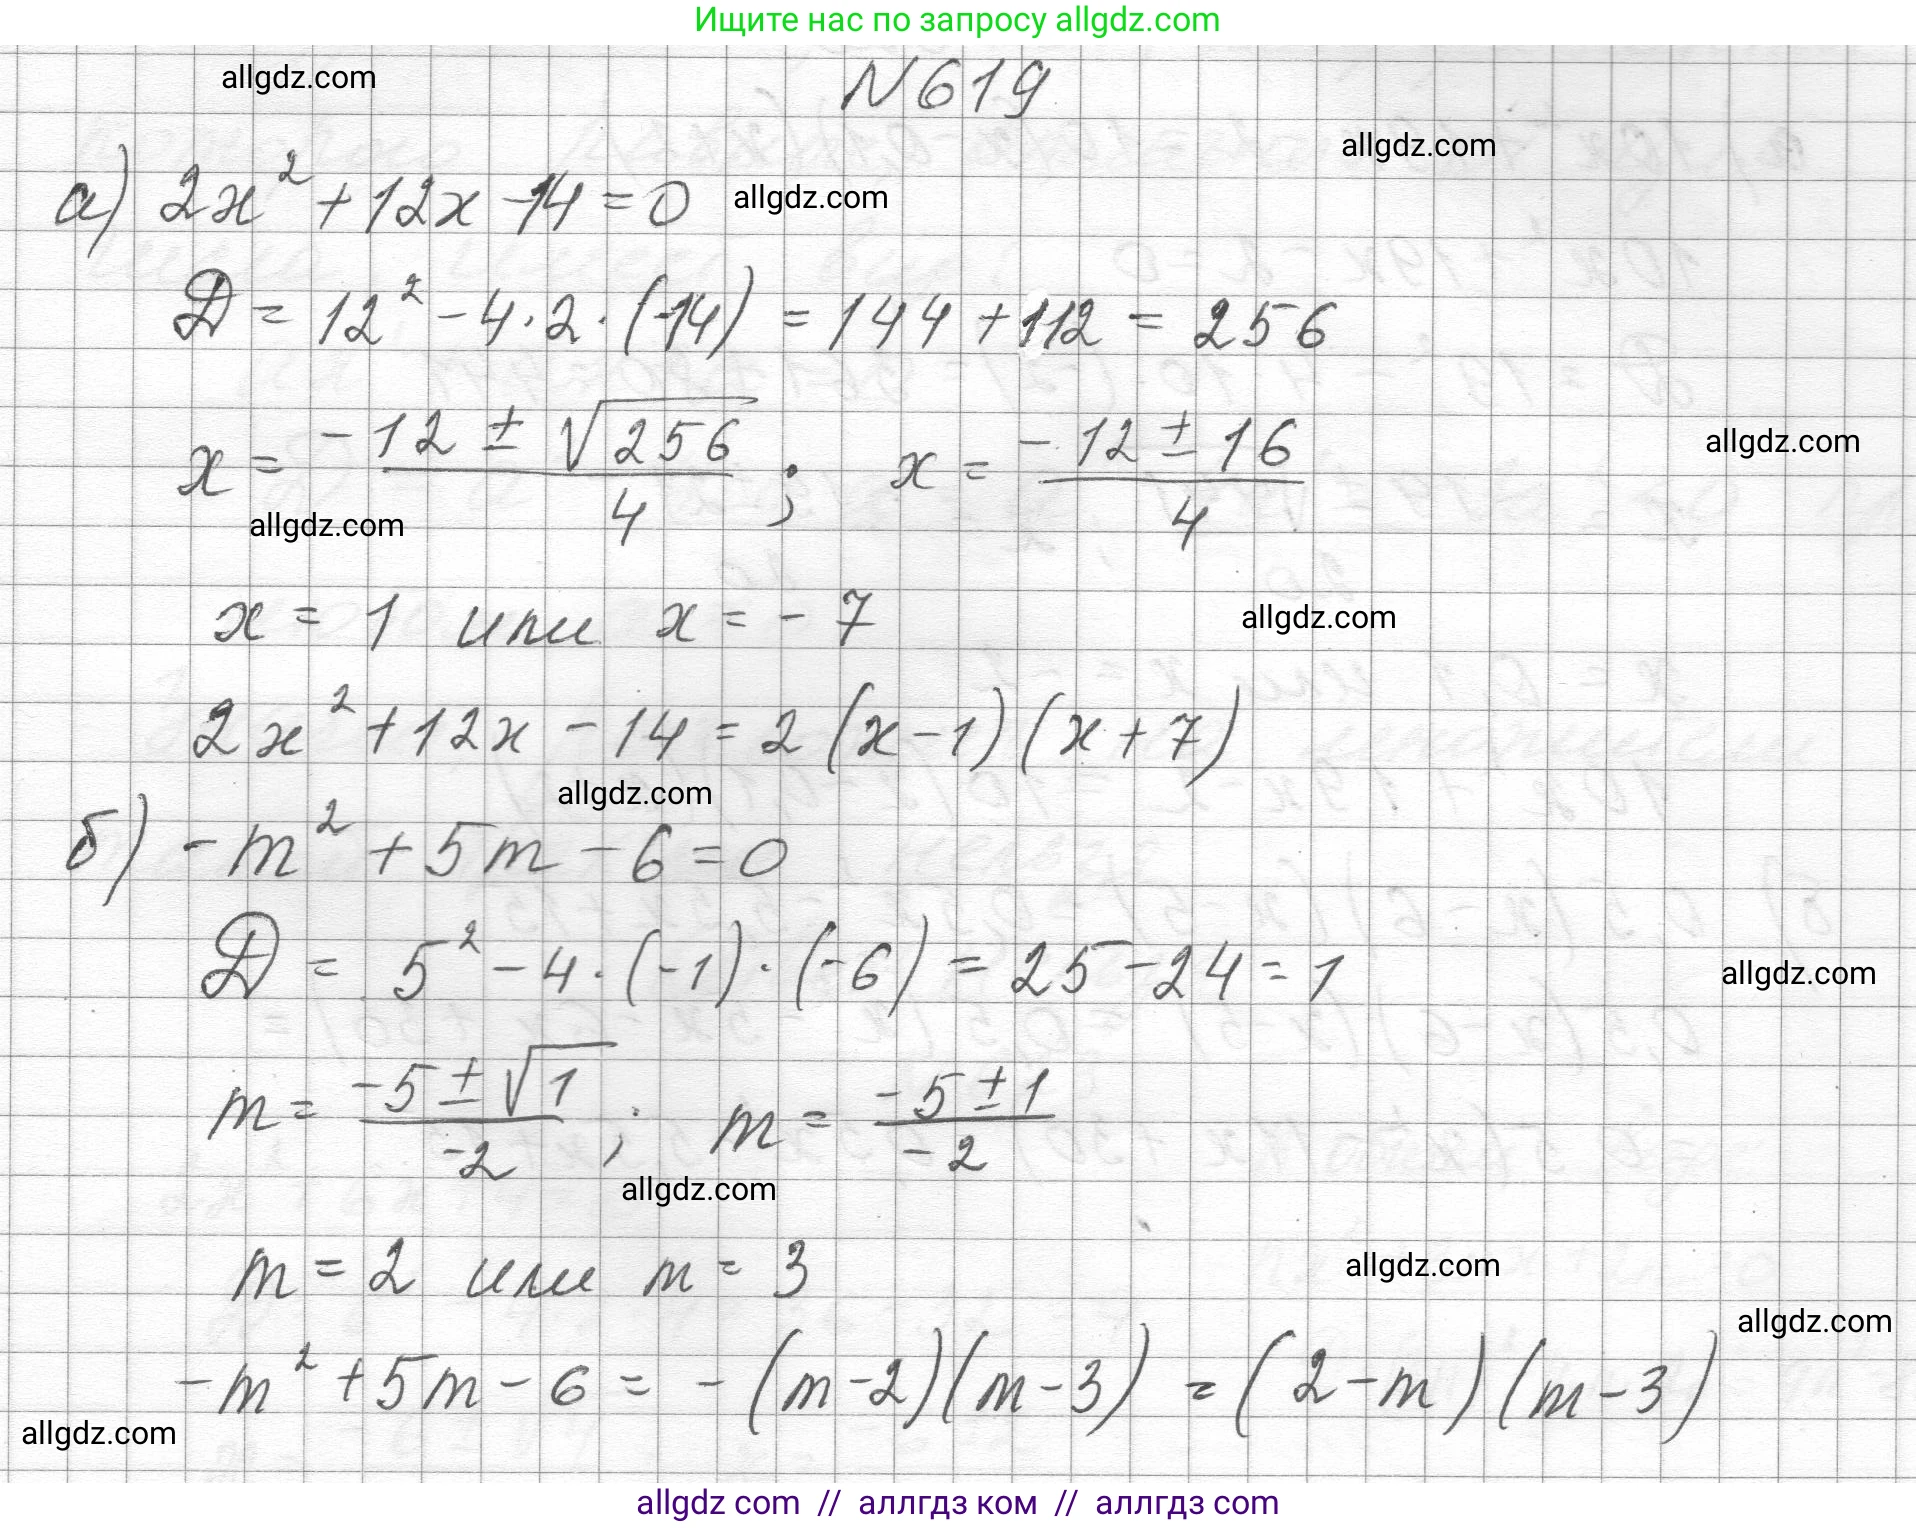 Ищите нас по запросу allgdz.com
allgdz.com
N619
allgdz.com
а) 2x² + 12x - 14 = 0
allgdz.com
D = 12² - 4 · 2 · (-14) = 144 + 112 = 256
x = (-12 ± √256)/4 ; x = (-12 ± 16)/4
allgdz.com
allgdz.com
x = 1 или x = -7
allgdz.com
2x² + 12x - 14 = 2(x - 1)(x + 7)
allgdz.com
б) -m² + 5m - 6 = 0
D = 5² - 4 · (-1) · (-6) = 25 - 24 = 1
allgdz.com
m = (-5 ± √1)/-2 ; m = (-5 ± 1)/-2
allgdz.com
m = 2 или m = 3
allgdz.com
allgdz.com
-m² + 5m - 6 = -(m - 2)(m - 3) = (2 - m)(m - 3)
allgdz.com
allgdz com // аллгдз ком // аллгдз com